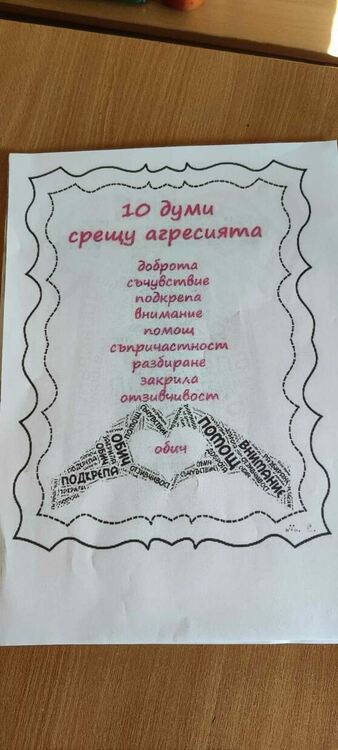 10 думи
срещу агресията
доброта
съчувствие
подкрепа
внимание
помощ
съпричастност
разбиране
закрила
отзивчивост
обич
ОБИЧ
ПОМОЩ
ВНИМАНИЕ
ПОДКРЕПА
ОТЗИВЧИВОСТ